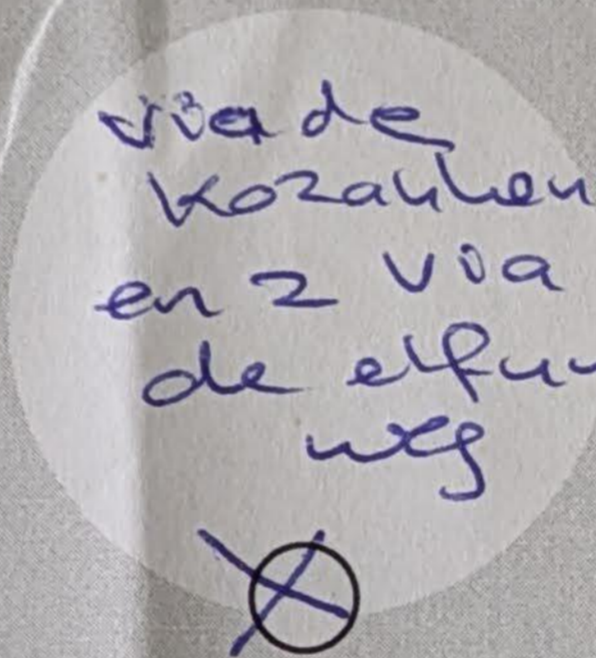 via de
Kozakken
en 2 via
de
weg